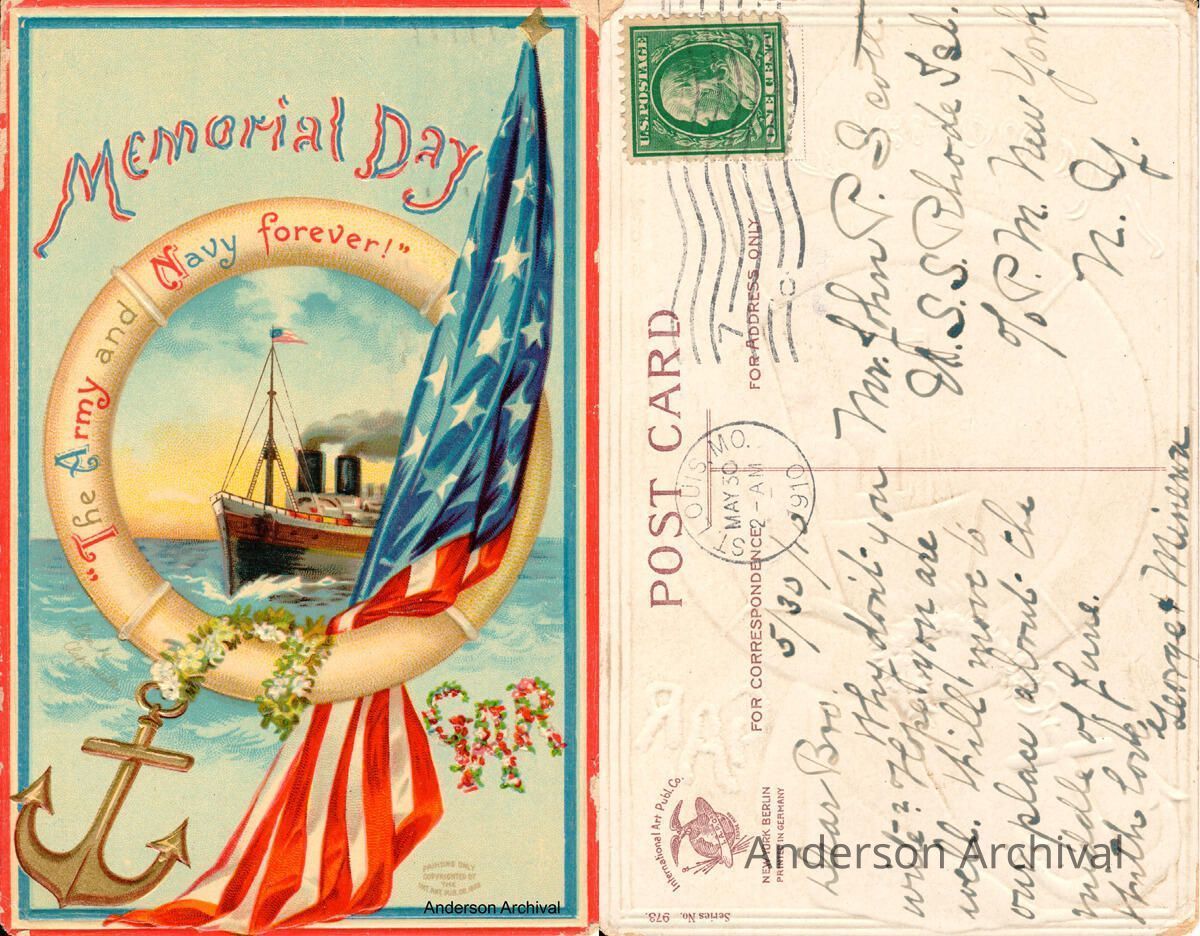 Memorial Day
"The Army and Navy forever!"
GAR
PRINTING ONLY
COPYRIGHTED BY
THE
INT. ART. PUB. CO. 
Anderson Archival
U.S. POSTAGE
ONE CENT
POST CARD
FOR CORRESPONDENCE
FOR ADDRESS ONLY
ST LOUIS, MO.
MAY 30
2 - AM
1910
7
C
Mr. John P. Scott
U.S.S. Rhode Isl.
c/o P.M. New York
N.Y.
5/30/10
Dear Bro
Why don't you
write?? Hope you are
well. Will move to
our place about the
middle of June.
With love,
George & Minerva
International Art Publ. Co.
NEW YORK BERLIN
PRINTED IN GERMANY
Series No. 973.
Anderson Archival